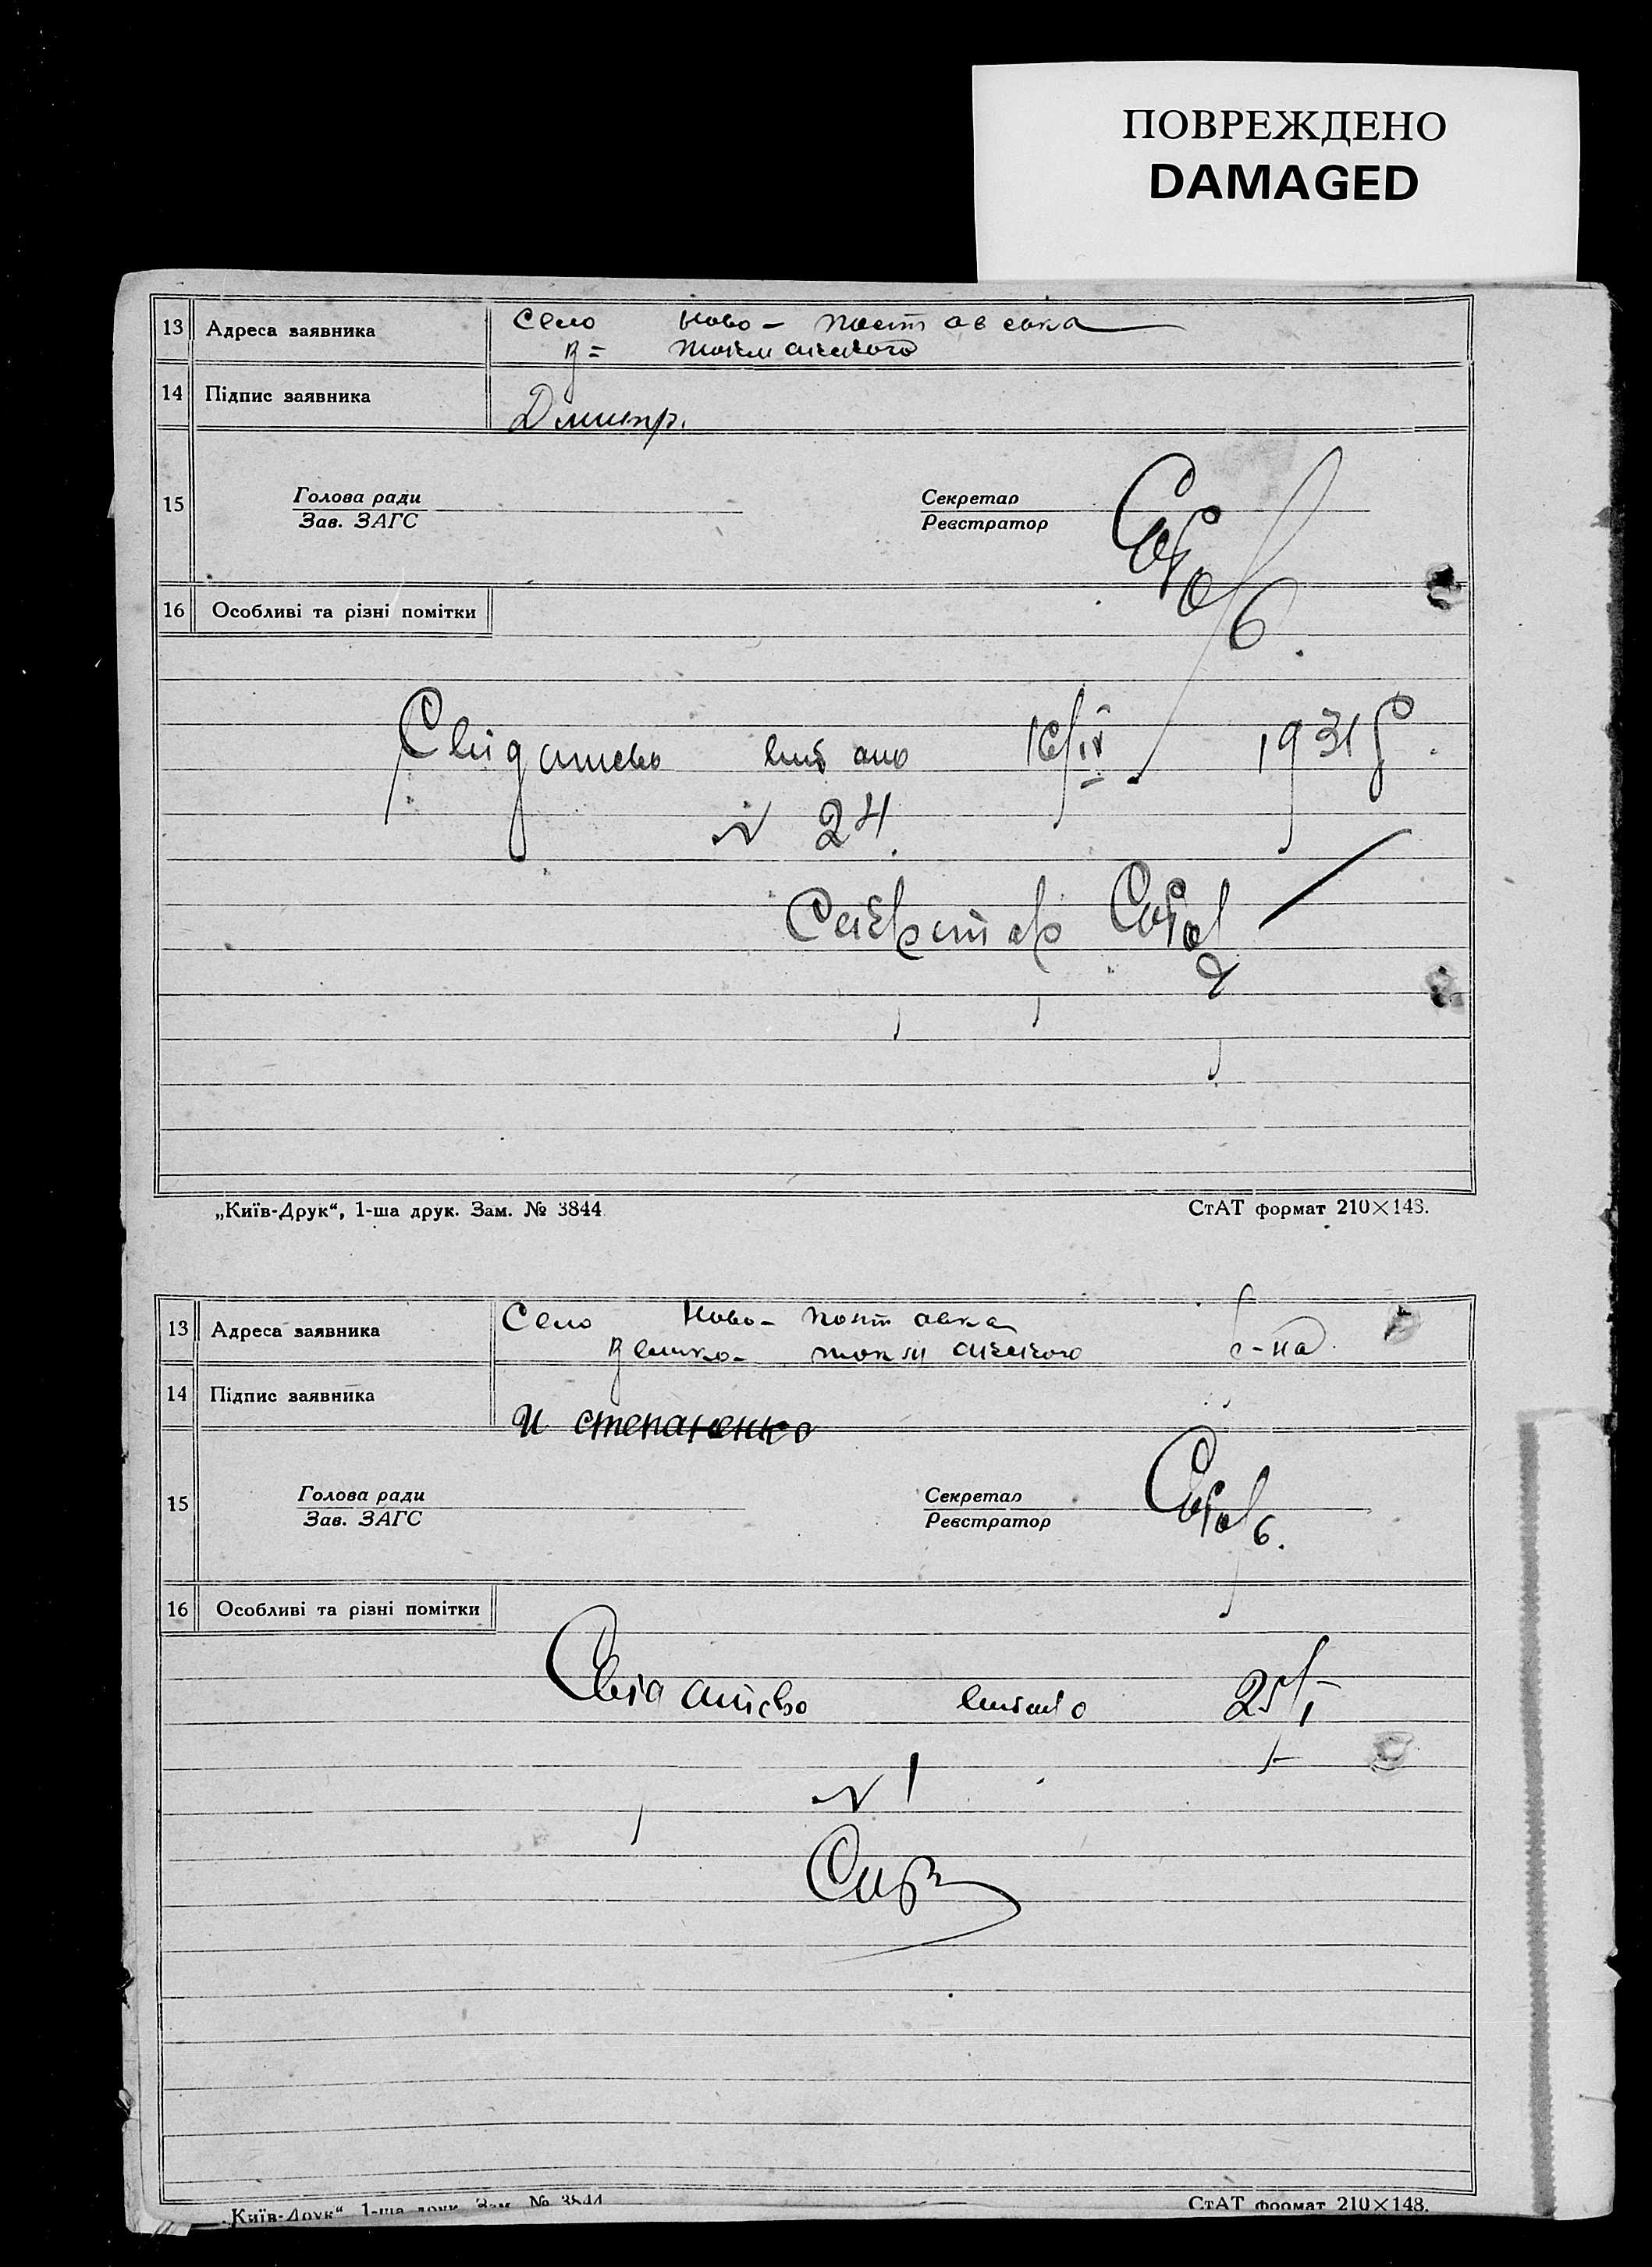 ПОВРЕЖДЕНО
DAMAGED
13 Адреса заявника Село Ново-
14 Підпис заявника Дмитр.
15 Голова ради Секретар
Зав. ЗАГС Реєстратор
16 Особливі та різні помітки
Свідатство видано 16/IV 1931 р.
N 24
Секретар
„Київ-Друк“, 1-ша друк. Зам. № 3844 СтАТ формат 210×148.
13 Адреса заявника Село Ново- Полтавка
Велико- Токмацкого р-на
14 Підпис заявника И степаненко
15 Голова ради Секретар
Зав. ЗАГС Реєстратор
16 Особливі та різні помітки
Свідатство видано 25/I
N 1
„Київ-Друк“, 1-ша друк. Зам. № 3844 СтАТ формат 210×148.